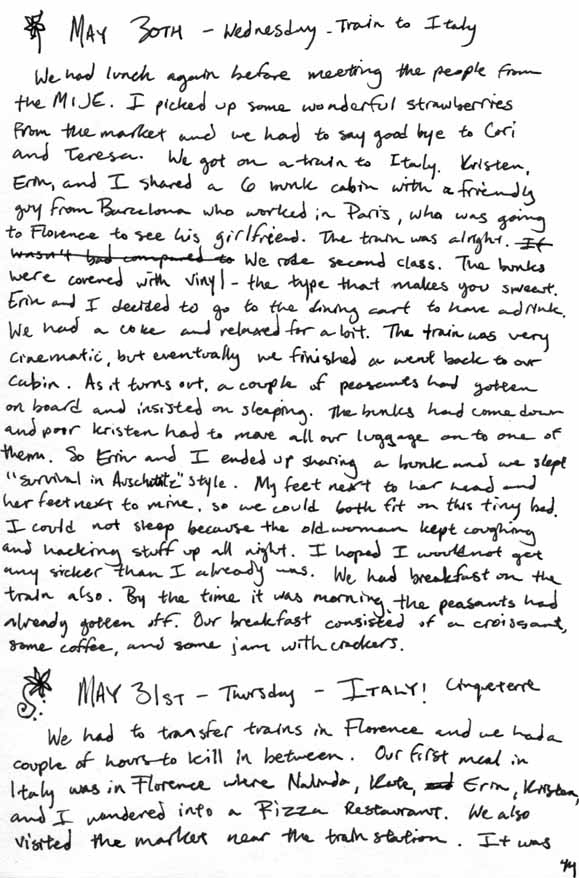 MAY 30TH - Wednesday - Train to Italy
We had lunch again before meeting the people from
the MIJE. I picked up some wonderful strawberries
from the market and we had to say good bye to Cori
and Teresa. We got on a train to Italy. Kristen,
Erin, and I shared a 6 bunk cabin with a friendly
guy from Barcelona who worked in Paris, who was going
to Florence to see his girlfriend. The train was alright. It
wasn't bad compared to We rode second class. The bunks
were covered with vinyl - the type that makes you sweat.
Erin and I decided to go to the dining cart to have a drink.
We had a coke and relaxed for a bit. The train was very
cinematic, but eventually we finished & went back to our
cabin. As it turns out, a couple of peasants had gotten
on board and insisted on sleeping. The bunks had come down
and poor Kristen had to move all our luggage on to one of
them. So Erin and I ended up sharing a bunk and we slept
"survival in Auschwitz" style. My feet next to her head and
her feet next to mine, so we could both fit on this tiny bed.
I could not sleep because the old woman kept coughing
and hacking stuff up all night. I hoped I would not get
any sicker than I already was. We had breakfast on the
train also. By the time it was morning, the peasants had
already gotten off. Our breakfast consisted of a croissant,
some coffee, and some jam with crackers.
MAY 31ST - Thursday - ITALY! Cinqueterre
We had to transfer trains in Florence and we had a
couple of hours to kill in between. Our first meal in
Italy was in Florence where Nalinda, Kate, and Erin, Kristen,
and I wandered into a Pizza Restaurant. We also
visited the market near the train station. It was
44